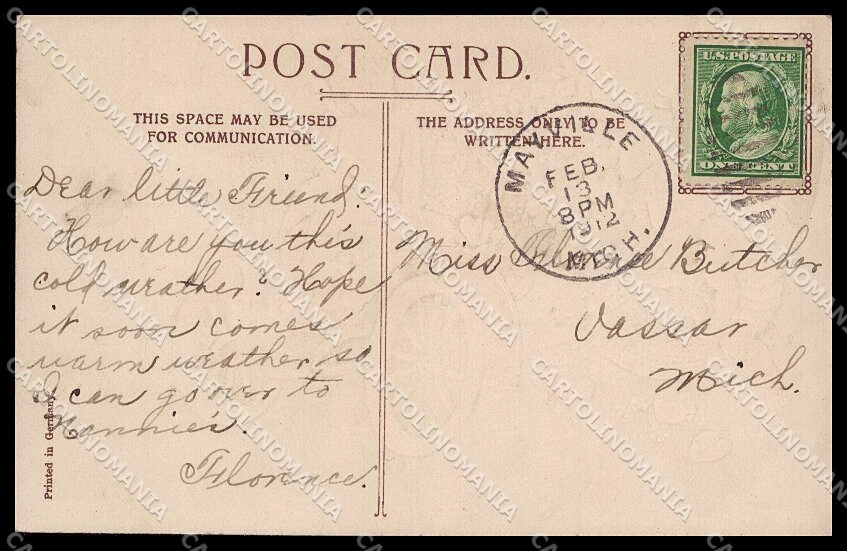 POST CARD.
THIS SPACE MAY BE USED
FOR COMMUNICATION.
THE ADDRESS ONLY TO BE
WRITTEN HERE.
U.S. POSTAGE
ONE CENT
MAYVILLE
FEB.
13
8 PM
1912
MICH.
Dear little Friend:
How are you this
cold weather? Hope
it soon comes
warm weather so
I can go over to
Nannie's.
Florence.
Miss Butcher
Vassar
Mich.
Printed in Germany
CARTOLINOMANIA